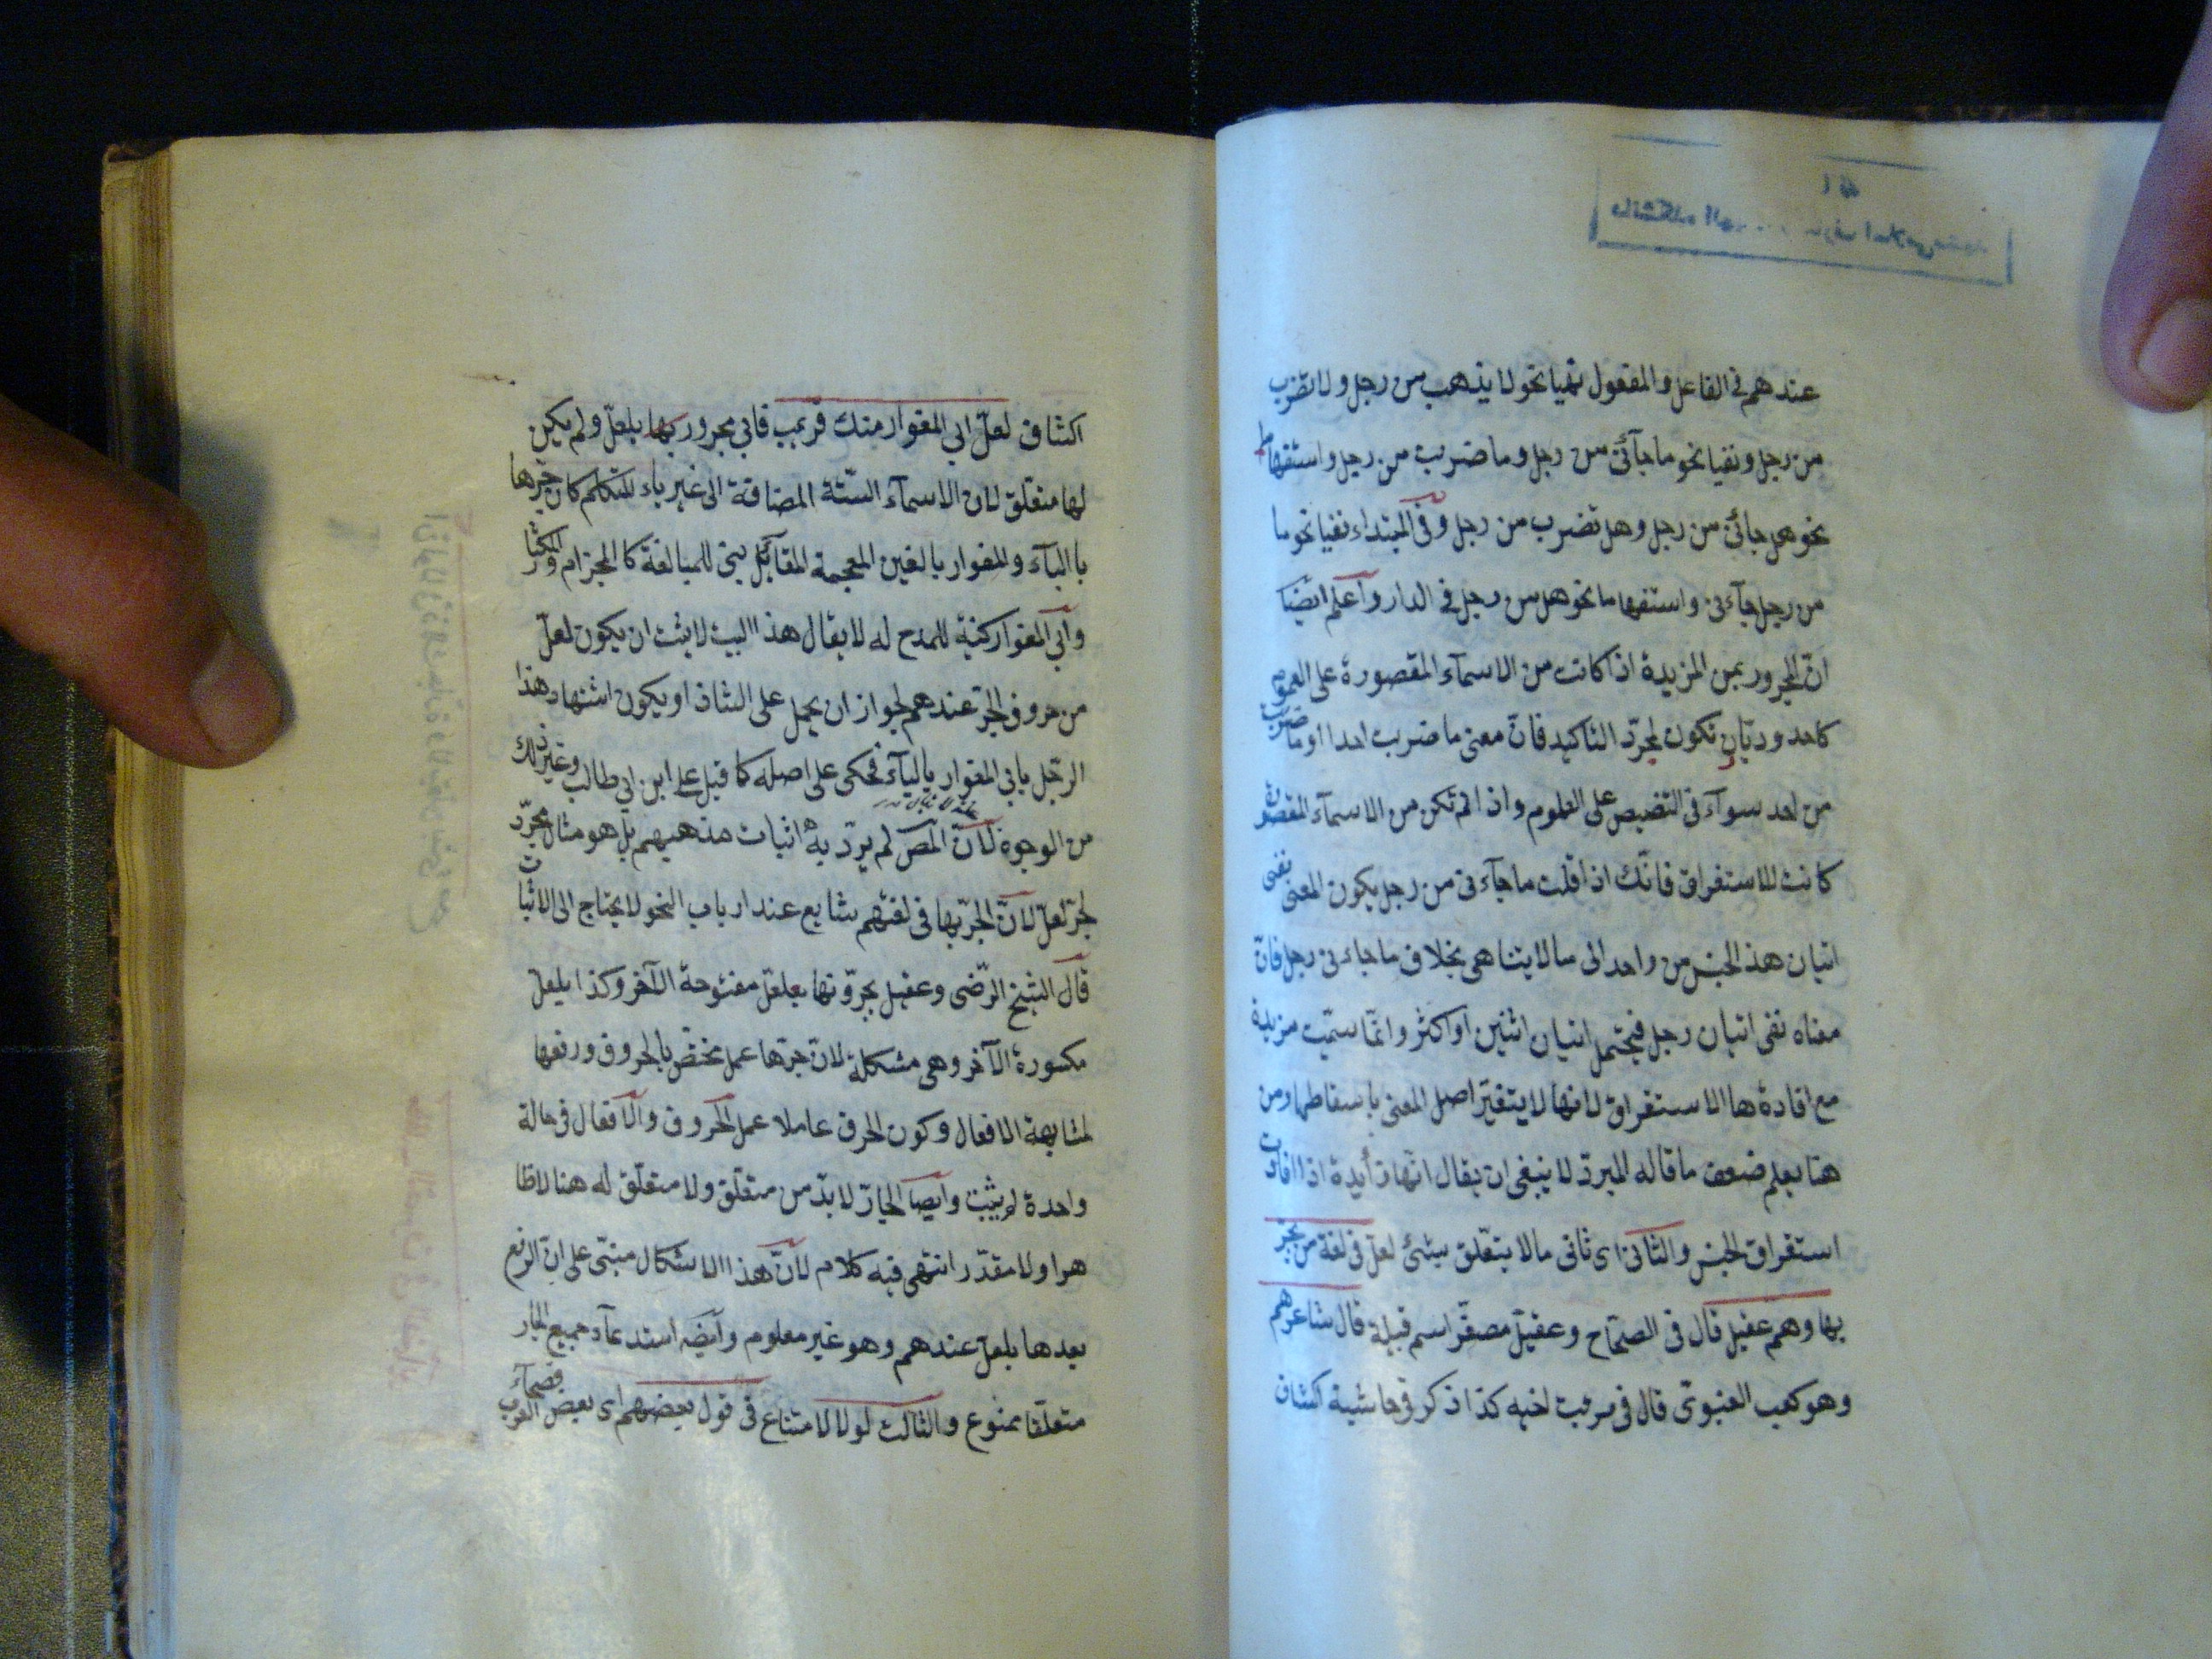 عندهم في الفاعل والمفعول نهيا نحو لا يذهب من رجل ولا تضرب
من رجل ونفيا نحو ما جآئني من رجل وما ضربت من رجل واستفهاما
نحو هل جائني من رجل وهل تضرب من رجل وفي المبتداء نفيا نحو ما
من رجل جآءني واستفهاما نحو هل من رجل في الدار واعلم ايضا
انّ المجرور بمن المزيدة اذا كانت من الاسمآء المقصورة على العموم
كاحد وديّار تكون لمجرّد التاكيد فانّ معنى ما ضربت احدا او ما ضربت
من احد سوآء في التنصيص على العموم واذا لم تكن من الاسمآء المقصورة
كانت للاستغراق فانّك اذا قلت ما جآءني من رجل يكون المعنى نفى
اتيان هذ الجنس من واحد الى ما لا يتناهى بخلاف ما جاءني رجل فانّ
معناه نفى اتيان رجل فيحتمل اتيان اثنين او اكثر وانّما سمّيت مزيدة
مع افادة ها الاستغراق لانها لا يتغيّر اصل المعنى باسقاطها ومن
هنا يعلم ضعف ما قاله المبرد لا ينبغى ان يقال انّها زايدة اذا افادت
استغراق الجنس والثانى اى ثانى ما لا يتعلّق بشئ لعلّ فى لغة من يجر
بها وهم عقيل قال فى الصحّاح وعقيل مصغّر اسم قبيلة قال شاعرهم
وهو كعب الغنوىّ قال فى مرثيت اخيه كذا ذكر فى حاشية اكشاف
اكشاف لعلّ ابي المغوار منك قريب فابي مجرور بها بلعلّ ولم يكن
لها متعلّق لان الاسمآء الستّة المضافة الى غير ياء المتكلم كان جرّها
با اليآء والمغوار بالغين المعجمة المقاتل بنى للمبالغة كا المجزام والمكثار
وابي المغوار كنية للمدح له لا يقال هذ البيت لا يثبت ان يكون لعلّ
من حروف الجرّ عندهم لجواز ان يحمل على الشاذ او يكون اشتهار هذا
الرّجل بابي المغوار باليآء فحكى على اصله كما قيل على ابن ابي طالب وغير ذلك
من الوجوه لانّ المص لم يرد به اثبات مذهبهم بل هو مثال مجرّد
لجرّ لعلّ لانّ الجرّ بها فى لغتهم شايع عند ارباب النحو لا يحتاج الى الاثبات
قال الشيخ الرّضى وعقيل يجرّونها بعلعلّ مفتوحة الآخر وكذا بلعلّ
مكسورة الآخر وهى مشكلة لانّ جرّها عمل مختصّ بالحروف ورفعها
لمشابهة الافعال وكون الحرف عاملا عمل الحروف والافعال فى حالة
واحدة لم يثبت وايضا الجارّ لا بدّ من متعلّق ولا متعلّق له هنا لا ظا
هرا ولا مقدّر انتهى فيه كلام لانّ هذا الاشكال مبنىّ على انّ الرفع
بعدها بلعلّ عندهم وهو غير معلوم وايضه استدعآء جميع الجار
متعلّقا ممنوع والثالث لولا لامتناع فى قول بعضهم اى بعض فصحآء العرب